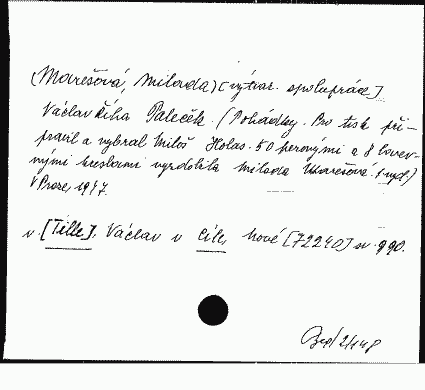 (Marešová, Milada) [výtvar. spolupráce]
Václav Říha Paleček. (Pohádky. Pro tisk při-
pravil a vybral Miloš Holas. 50 perovými a 8 barev-
nými kresbami vyzdobila Milada Marešová. 1. vyd.)
V Praze, 1947.
v. [Tille], Václav v Cíle, Nové [72240] sv. 990.
2/148